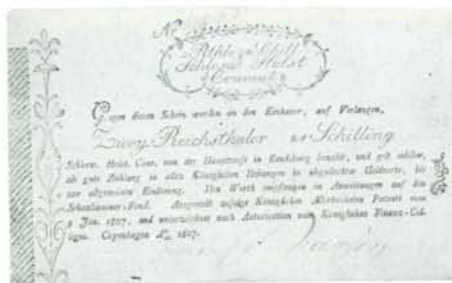 No
Rthlr. Schill
Schlesw. Holst
Courant
Gegen diesen Schein werden an den Einhaber, auf Verlangen,
Zwey Reichsthaler Schilling
Schlesw. Holst. Cour. von der Hauptcasse in Rendsburg bezahlt, und gilt selbiger,
als gute Zahlung in allen Königlichen Hebungen in abgedachter Geldsorte, bis
zur allgemeinen Einlösung. Den Werth empfangen in Anweisungen auf den
Schatzkammer-Fond. Ausgestellt zufolge Königlichen Allerhöchsten Patents vom
Jan. 1807, und unterzeichnet nach Autorisation vom Königlichen Finanz-Col-
legio. Copenhagen 1807.